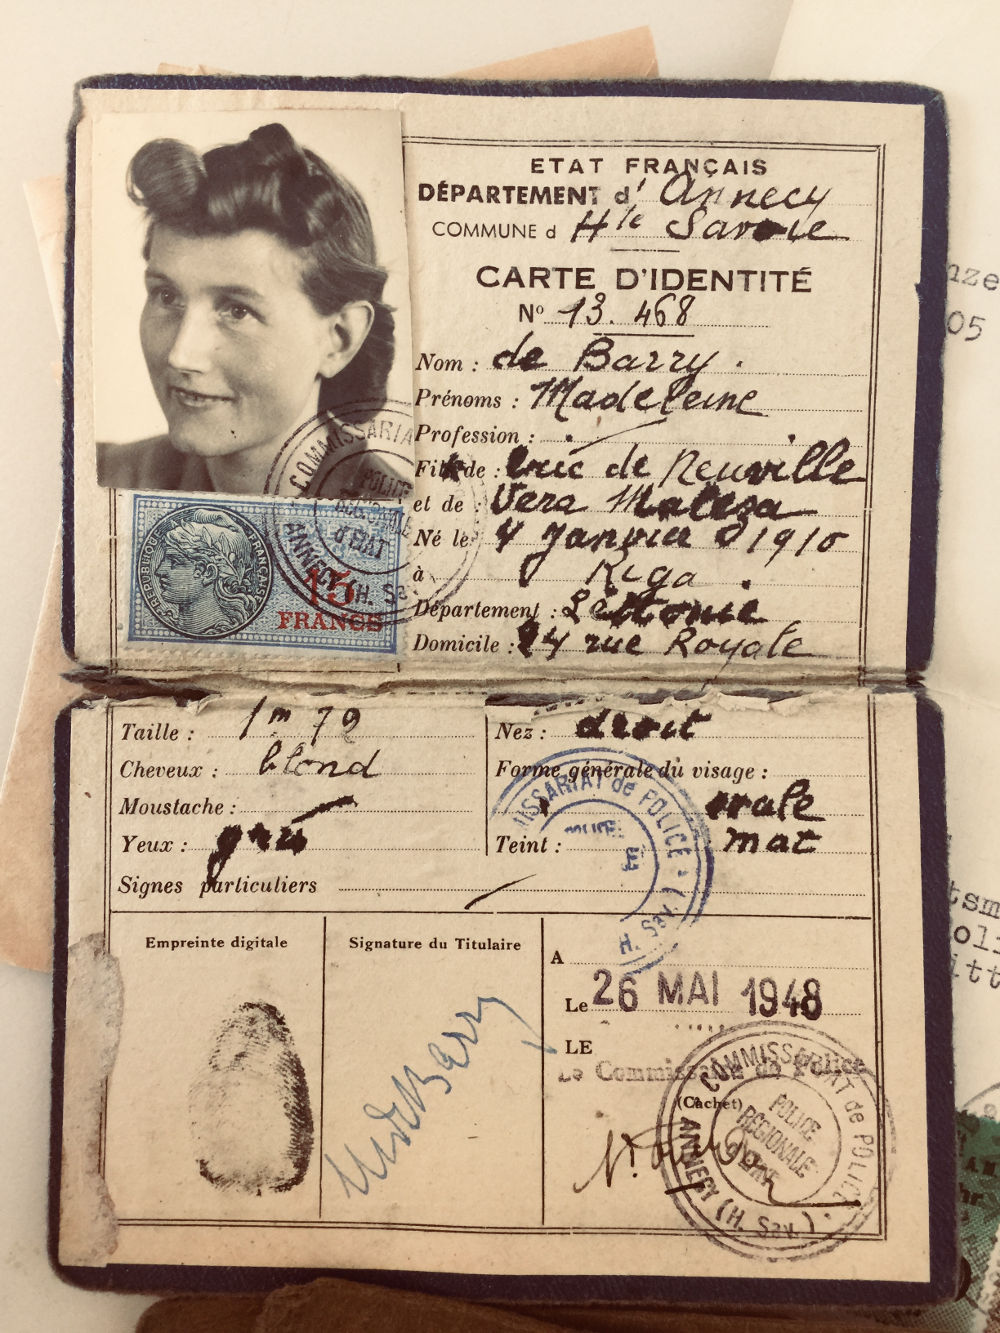 ETAT FRANÇAIS
DÉPARTEMENT d' Annecy
COMMUNE d Hte Savoie
CARTE D'IDENTITÉ
No 13.468
Nom : de Barry.
Prénoms : Madeleine
Profession :
Fil de : Eric de Neuville
et de : Vera
Né le 4 Janvier 1910
à Riga
Département : Lettonie
Domicile : 24 rue Royale
COMMISSARIA
POLICE
REGIONALE
d'ETAT
ANNECY (H. Sav
REPUBLIQUE FRANÇAISE
15
FRANCS
Taille : 1m 72
Cheveux : blond
Moustache :
Yeux : gris
Signes particuliers
Nez : droit
Forme générale du visage :
ovale
Teint : mat
MISSARIAT de POLICE
H. Sav.
Empreinte digitale
Signature du Titulaire
MdeBarry
A
Le 26 MAI 1948
LE
Le Commissaire de Police
(Cachet)
COMMISSARIAT de POLICE
POLICE
REGIONALE
d'ETAT
ANNECY (H. Sav.)
nze
05
tsm
oli
itt